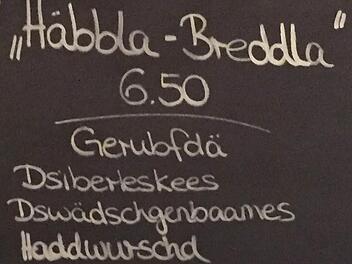 „Häbbla - Breddla“
6.50
Gerubfdä
Dsiberleskees
Dswädschgenbaames
Haddwurschd